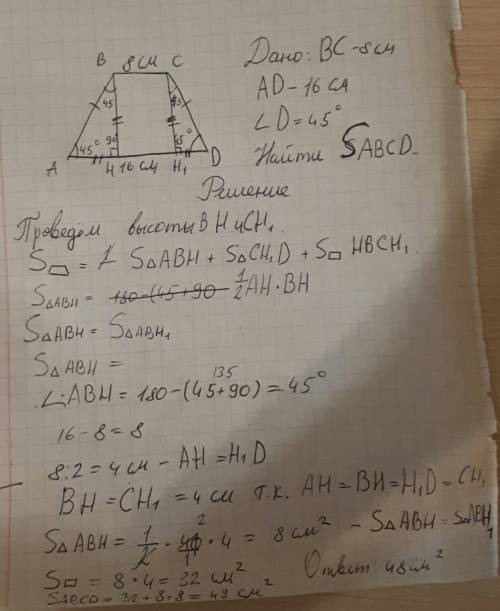 B 8 см C
45 45
45° 90 45°
A H 16 см H₁ D
Дано: BC - 8 см
AD - 16 см
∠D = 45°
Найти SABCD.
Решение
Проведём высоты BH и CH₁.
S▱ = 1 S△ABH + S△CH₁D + S□ HBCH₁.
S△ABH = 180-(45+90 1/2 AH · BH
S△ABH = S△ABH₁
S△ABH =
135
∠ABH = 180 - (45+90) = 45°
16 - 8 = 8
8:2 = 4 см - AH = H₁D
BH = CH₁ = 4 см т.к. AH = BH = H₁D = CH₁
S△ABH = 1/2 · 4 · 4 = 8 см² - S△ABH = S△ABH₁
S□ = 8 · 4 = 32 см²
Ответ: 48 см²
SABCD = 32 + 8 + 8 = 48 см²